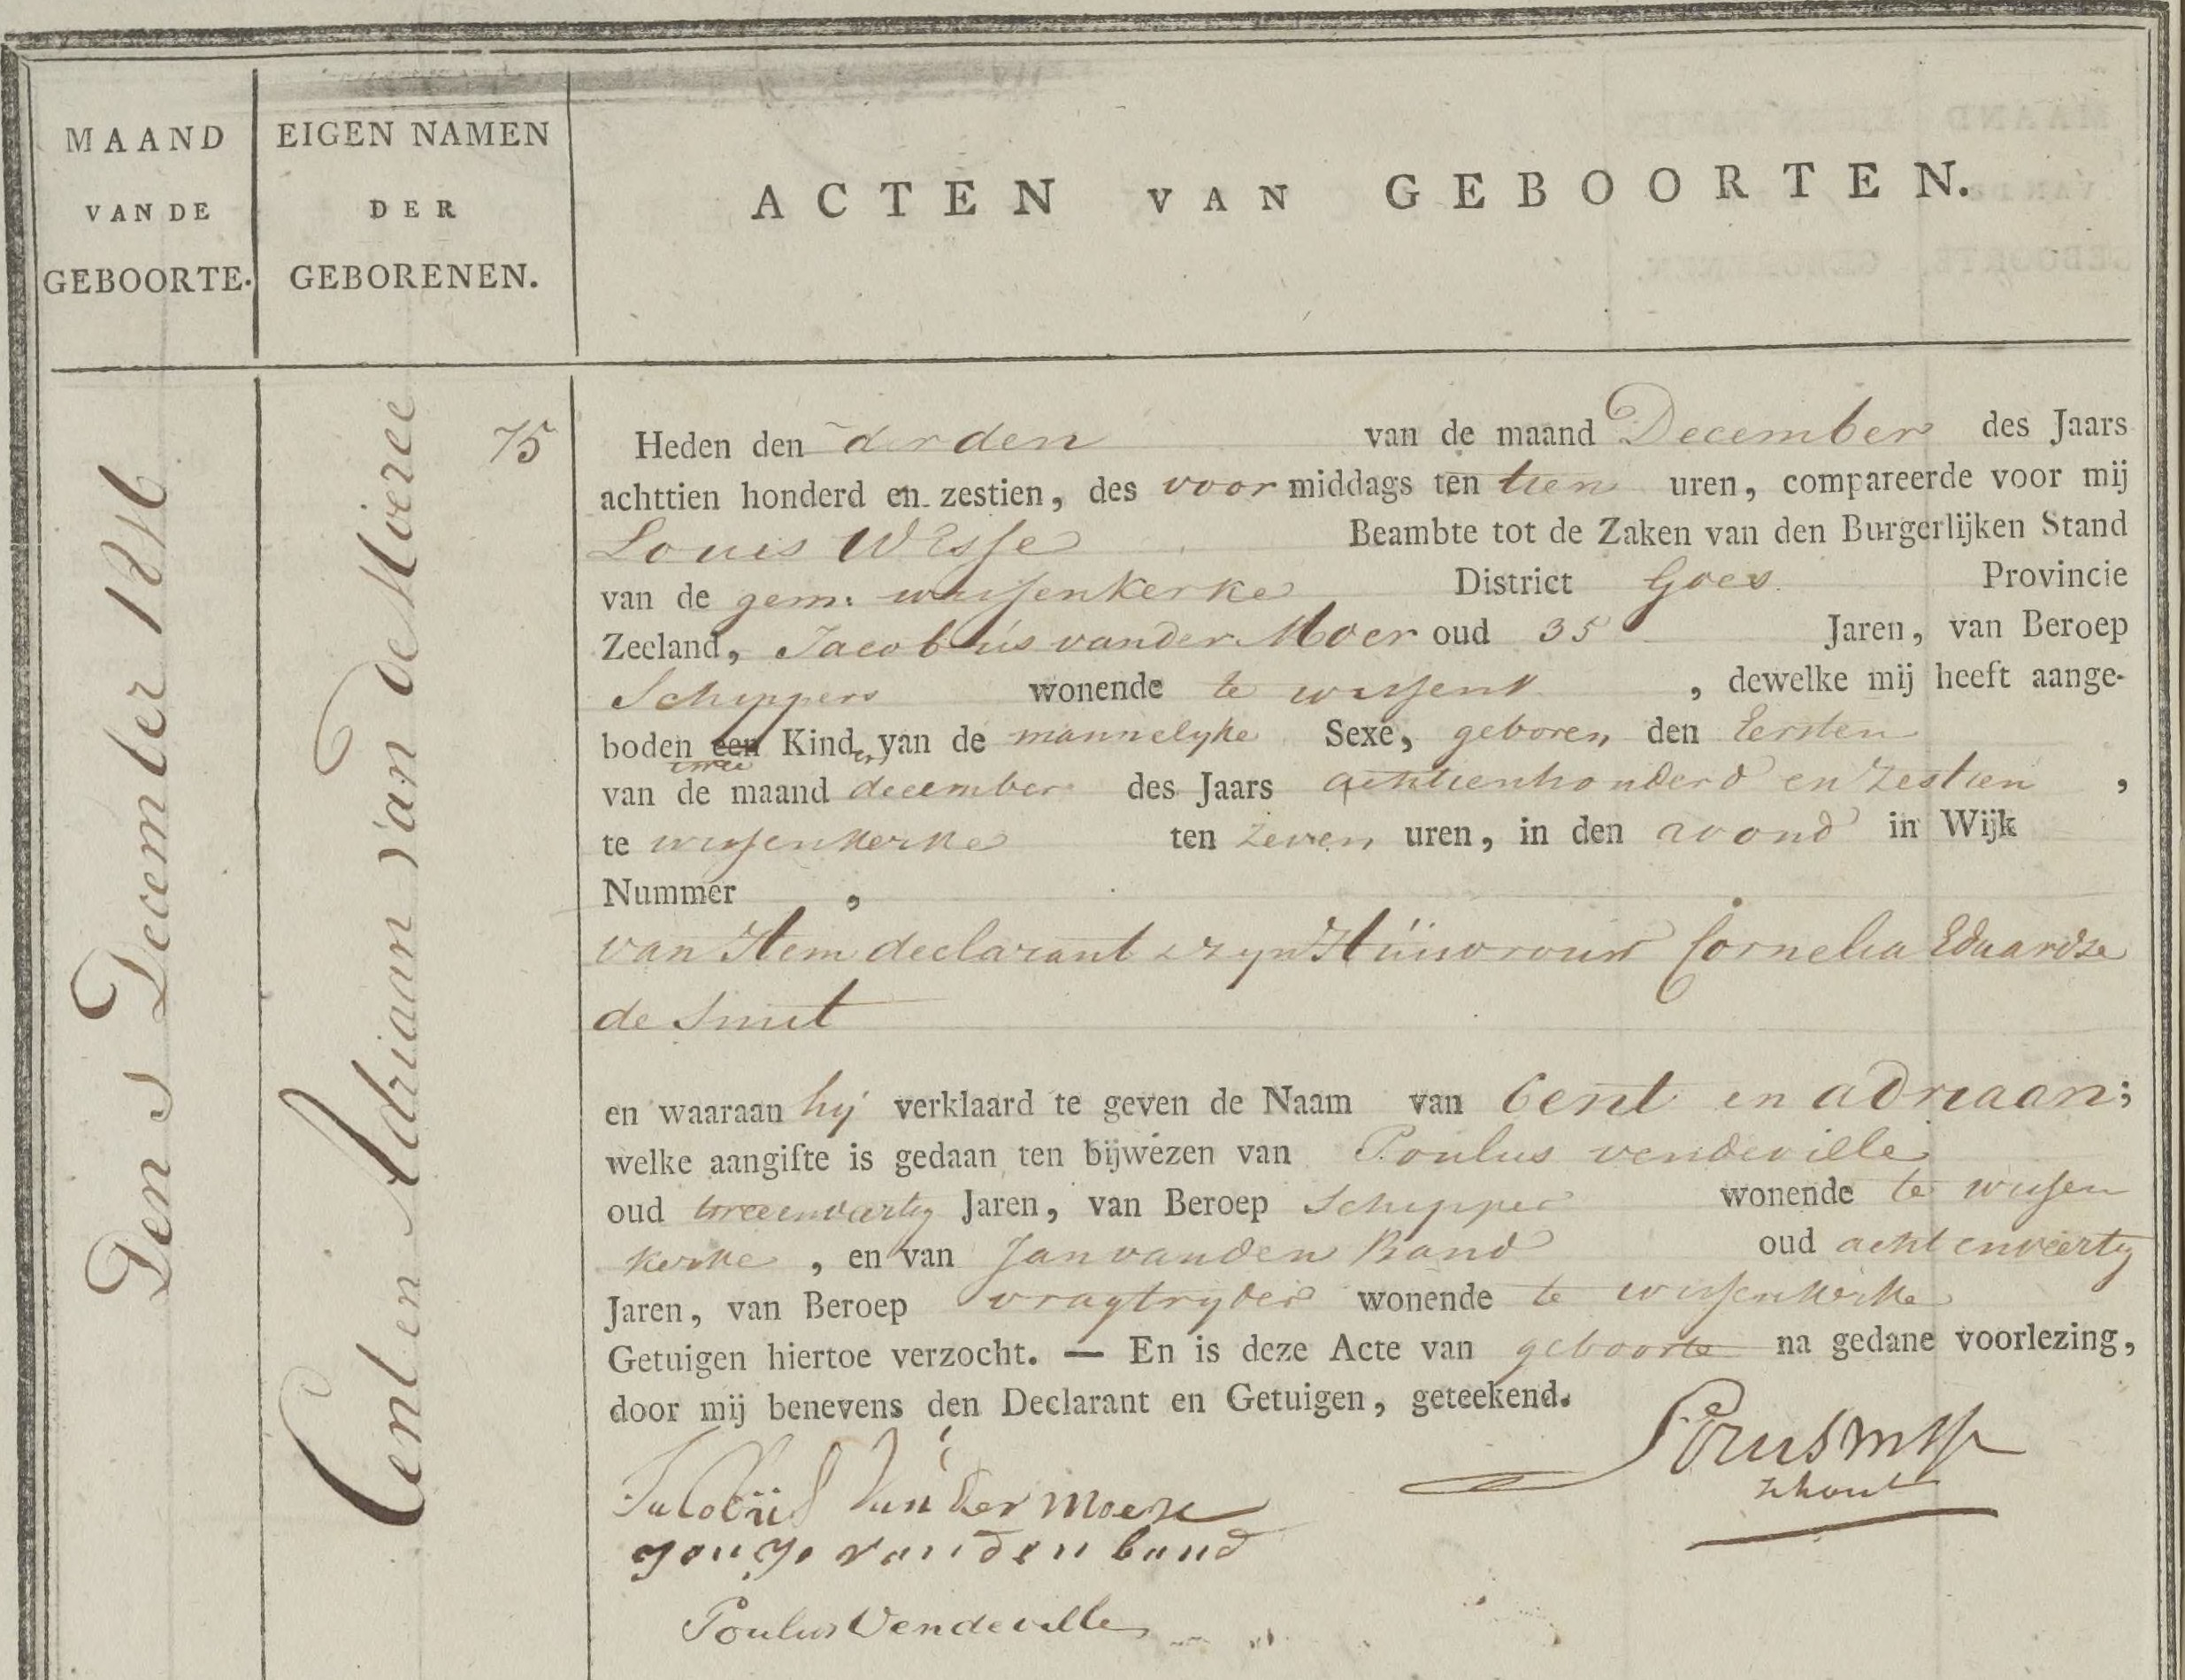 MAAND
VAN DE
GEBOORTE.
EIGEN NAMEN
DER
GEBORENEN.
ACTEN VAN GEBOORTEN.
Den 1 December 1816
Cent en Adriaan van de Moeree
75
Heden den derden van de maand December des Jaars
achttien honderd en zestien, des voor middags ten tien uren, compareerde voor mij
Louis Wisse Beambte tot de Zaken van den Burgerlijken Stand
van de gem: wissenkerke District Goes Provincie
Zeeland, Jacobus vander Moer oud 35 Jaren, van Beroep
Schippers wonende te wissenk , dewelke mij heeft aange-
boden een twee Kinder van de mannelyke Sexe, geboren den Eersten
van de maand december des Jaars achttienhonderd en Zestien ,
te wissenkerke ten Zeven uren, in den avond in Wijk
Nummer ,
van Hem declarant & zyn Huisvrouw Cornelia Eduardse
de Smit
en waaraan hij verklaard te geven de Naam van Cent en adriaan;
welke aangifte is gedaan ten bijwezen van Poulus vendeville
oud tweeenvartig Jaren, van Beroep Schipper wonende te wissen
kerke , en van Jan van den Band oud acht enveertig
Jaren, van Beroep vragtryder wonende te wissenkerke
Getuigen hiertoe verzocht. — En is deze Acte van geboorte na gedane voorlezing,
door mij benevens den Declarant en Getuigen, geteekend.
Jacobüs van der Moere
van den band
Poulus Vendeville
Louis Wisse